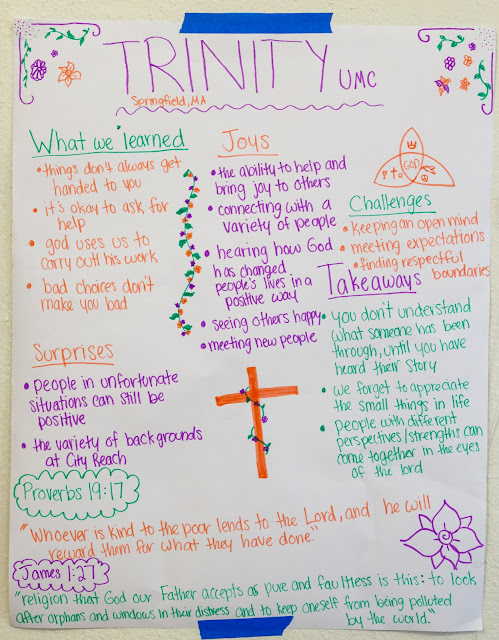 TRINITY UMC
Springfield, MA
What we learned
• things don't always get
handed to you
• it's okay to ask for
help
• god uses us to
carry out his work
• bad choices don't
make you bad
Joys
• the ability to help and
bring joy to others
• connecting with a
variety of people
• hearing how God
has changed
people's lives in a
positive way
• seeing others happy
• meeting new people
GOD
Challenges
• keeping an open mind
• meeting expectations
• finding respectful
boundaries
Takeaways
• you don't understand
what someone has been
through, until you have
heard their story
• we forget to appreciate
the small things in life
• people with different
perspectives/strengths can
come together in the eyes
of the lord
Surprises
• people in unfortunate
situations can still be
positive
• the variety of backgrounds
at City Reach
Proverbs 19:17
"Whoever is kind to the poor lends to the Lord, and he will
reward them for what they have done."
James 1:27
"religion that God our Father accepts as pure and faultless is this: to look
after orphans and windows in their distress and to keep oneself from being polluted
by the world."